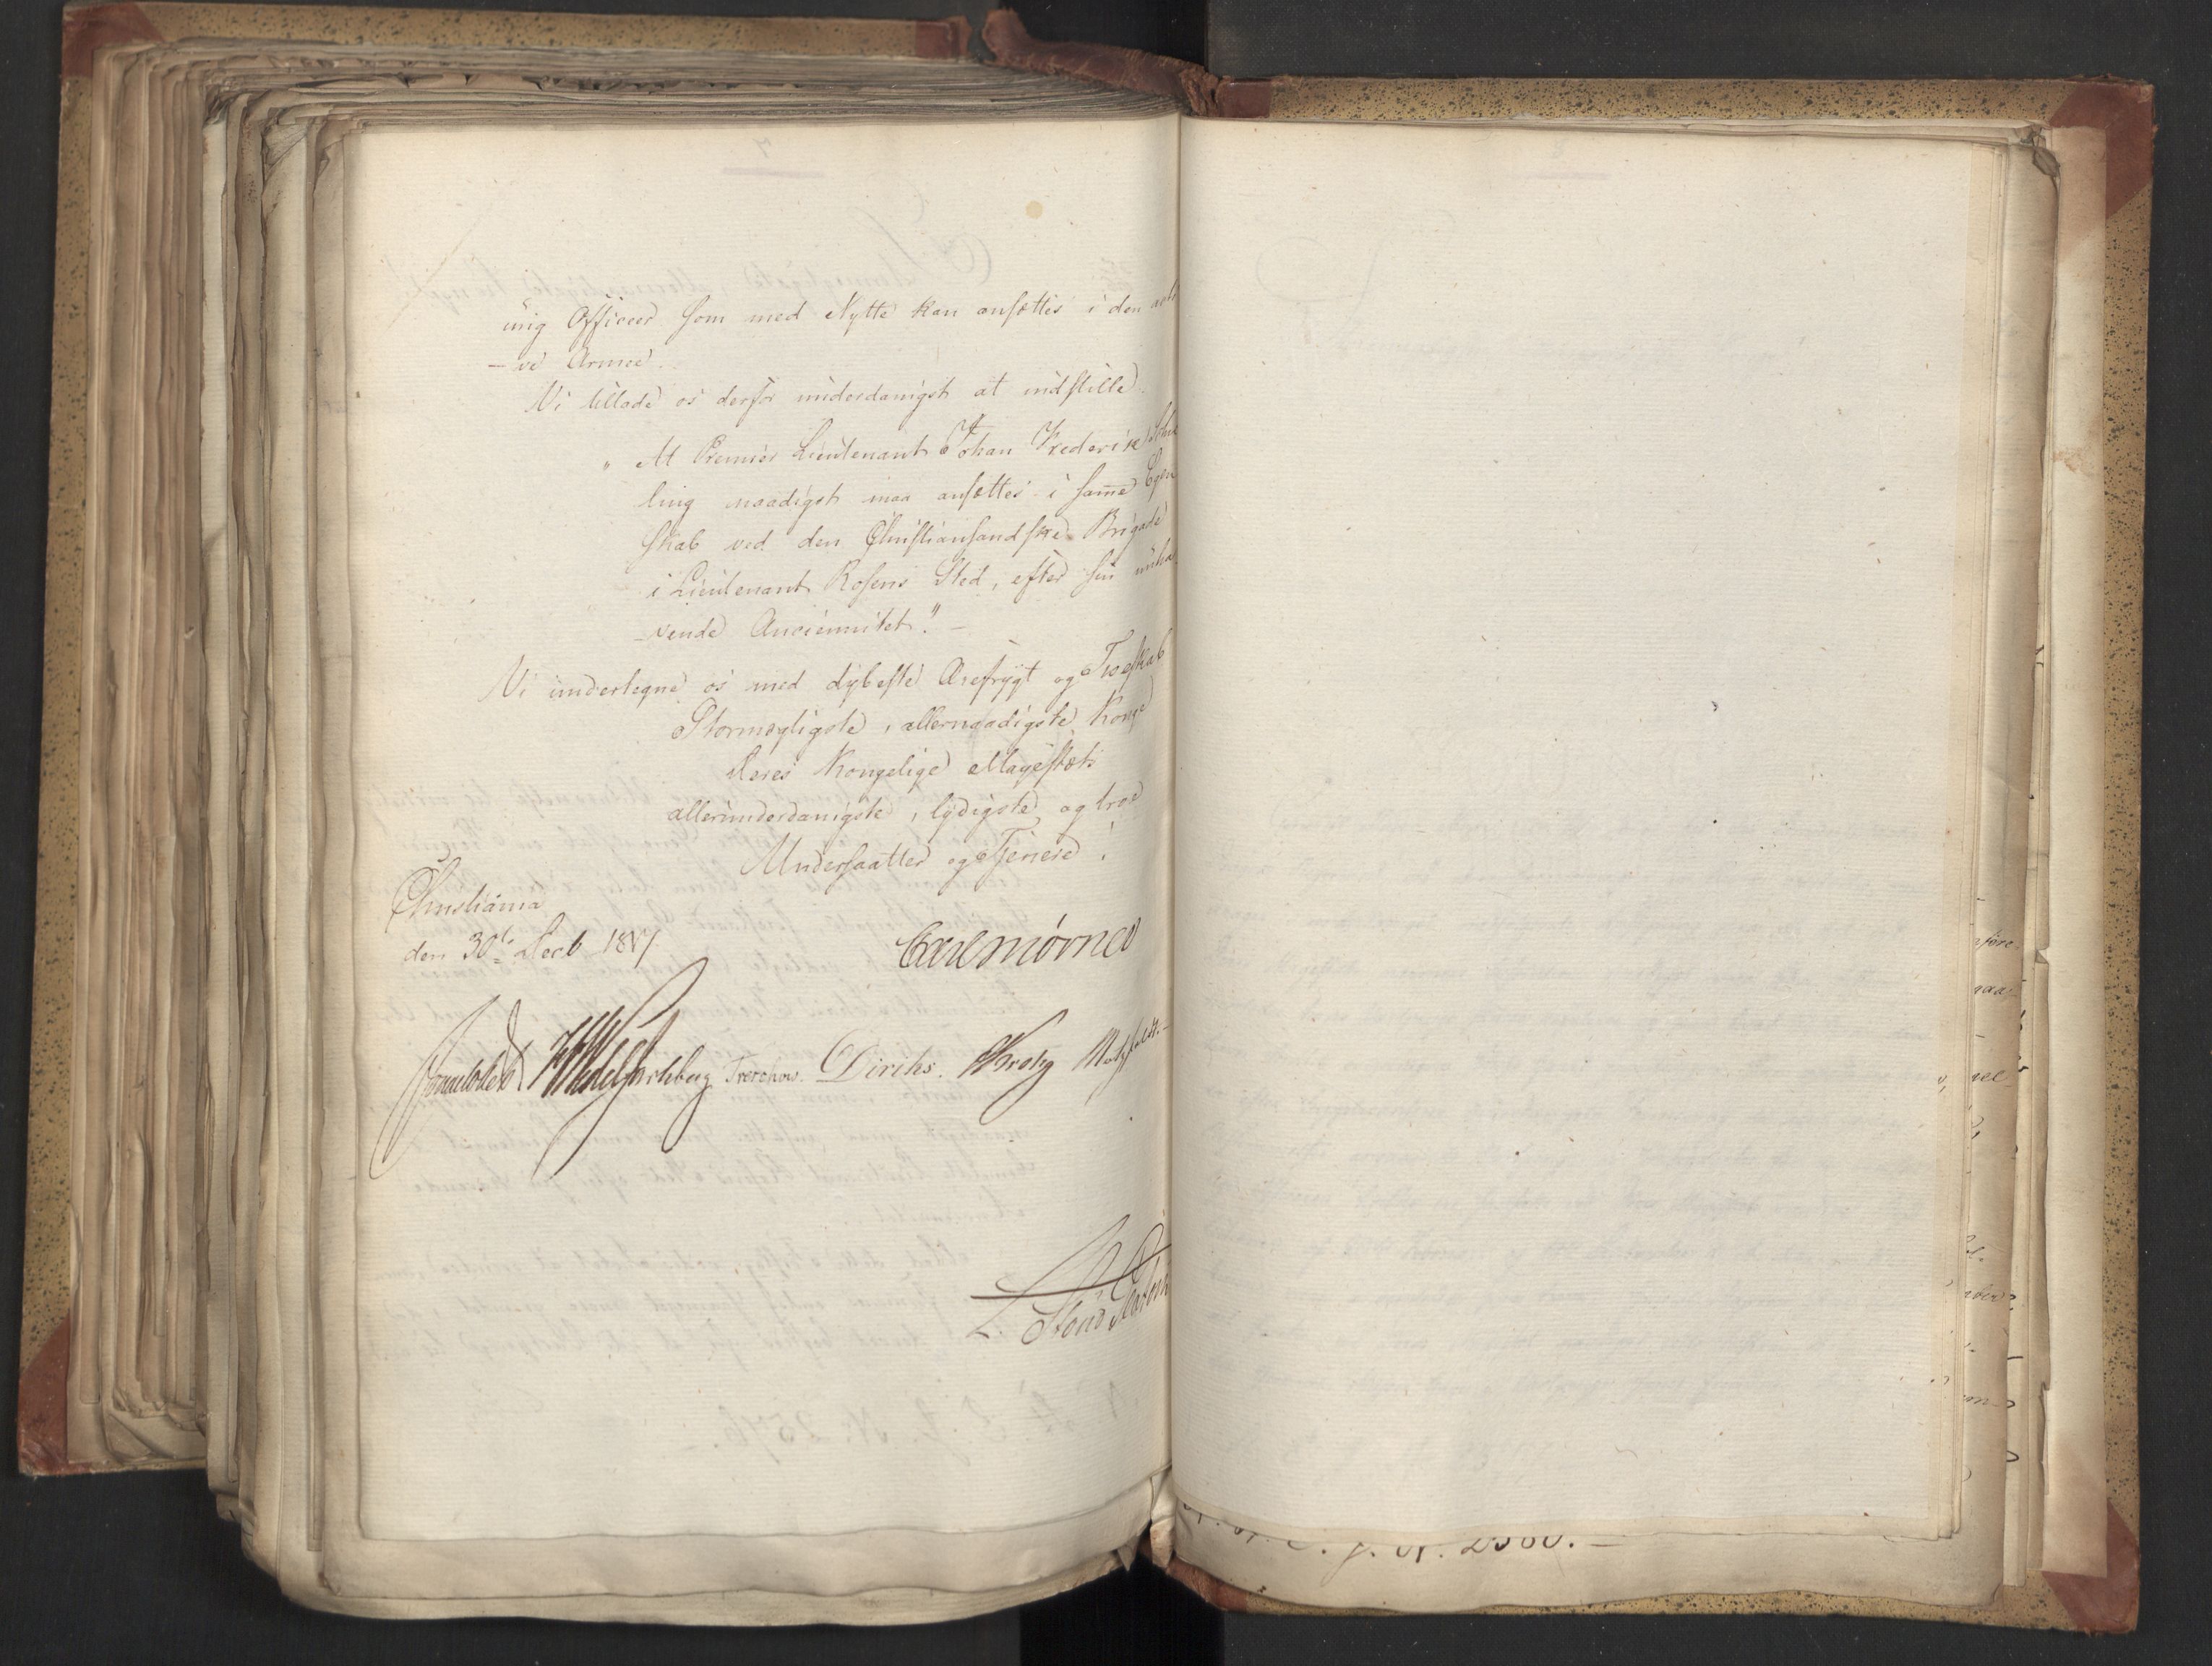 ung Officeer som med Nytte kan ansættes i den acti
-ve Armee.
Vi tillade os derfor underdanigst at indstille
„ At Premier Lieutenant Johan Frederik
ling naadigst maa ansættes i samme Egen
skab ved den Christiansandske Brigade
i Lieutenant Rosens Sted, efter sin inha
vende Anciennitet." –
Vi undertegne os med dybeste Ærefrygt og Troeskab
Stormægtigste, allernaadigste Konge
Deres Kongelige Majestæts
allerunderdanigste, lydigste og troe
Undersaatter og Tjenere.
Christiania
den 30te Decb 1817.
Carl Mörner
Sommerhielm HWedelJarlsberg Treschow. Diriks. Krohg Motzfeldt.
L. Stoud Platou
N. 2580. –